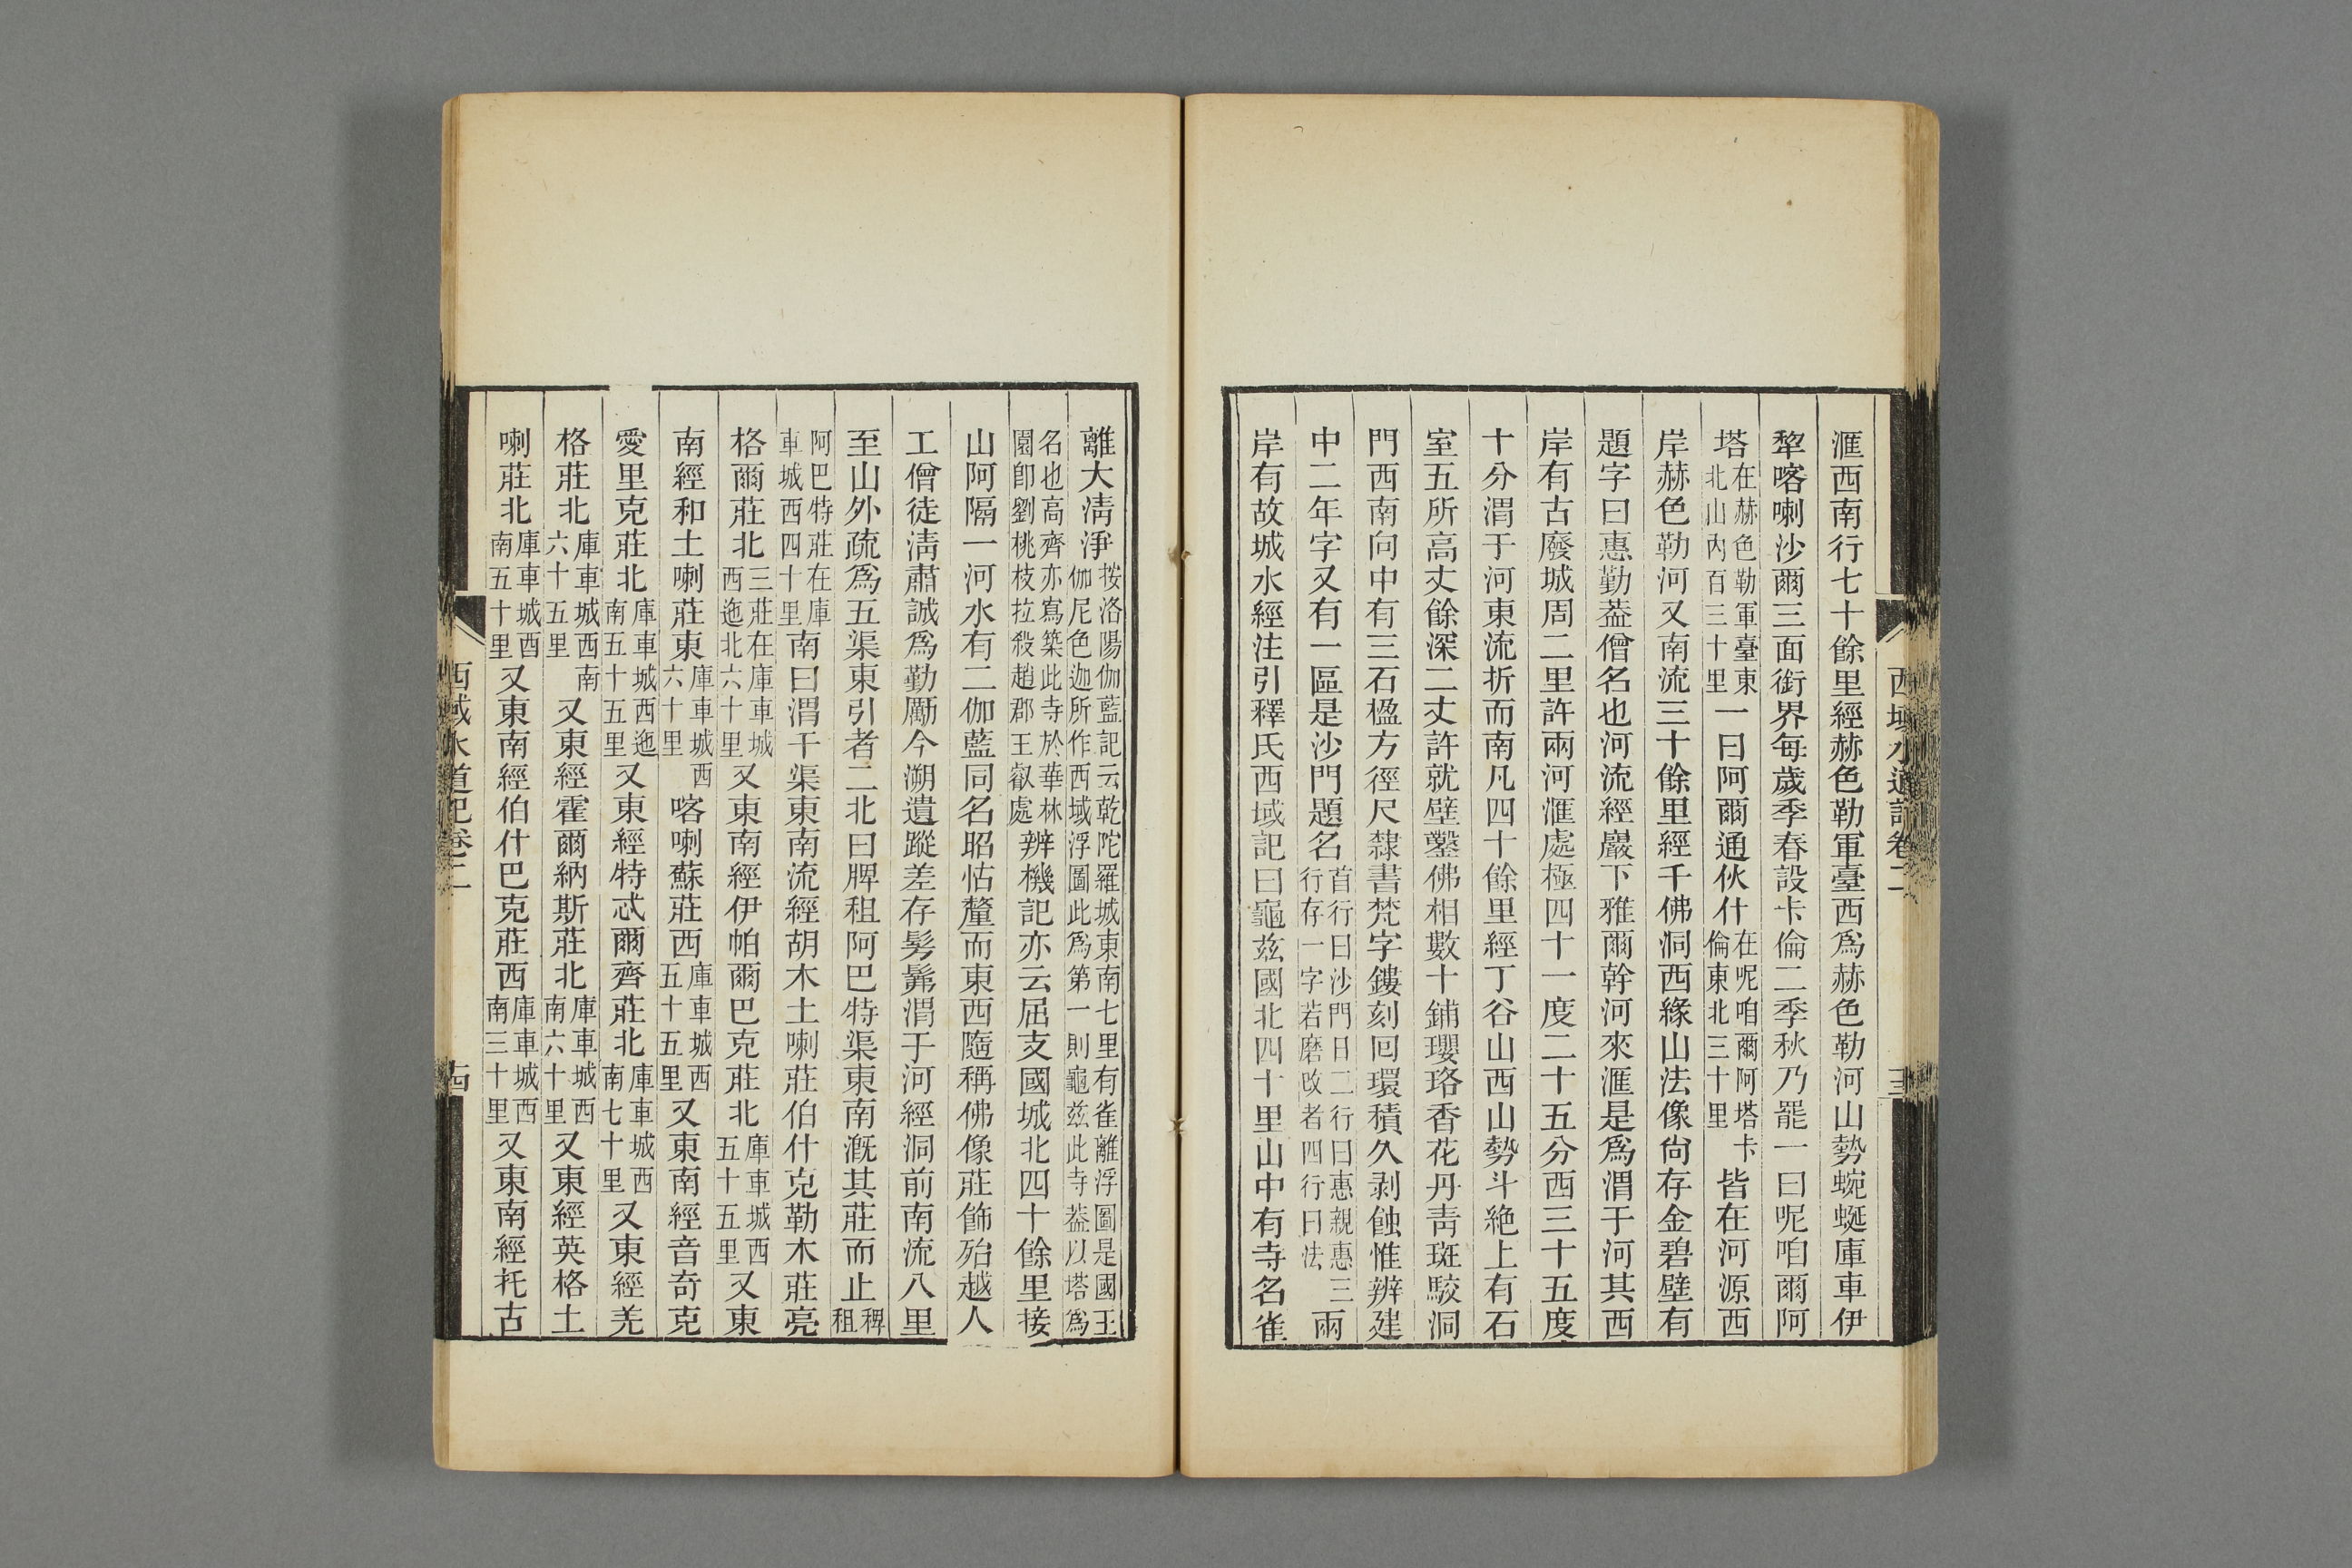 西域水道記卷二
滙西南行七十餘里經赫色勒軍臺西爲赫色勒河山勢蜿蜒庫車伊
犂喀喇沙爾三面銜界每歲季春設卡倫二季秋乃罷一曰呢咱爾阿
塔在赫色勒軍臺東北山內百三十里一曰阿爾通伙什在呢咱爾阿塔卡倫東北三十里皆在河源西
岸赫色勒河又南流三十餘里經千佛洞西緣山法像尙存金碧壁有
題字曰惠勤葢僧名也河流經巖下雅爾幹河來滙是爲渭于河其西
岸有古廢城周二里許兩河滙處極四十一度二十五分西三十五度
十分渭于河東流折而南凡四十餘里經丁谷山西山勢斗絶上有石
室五所高丈餘深二丈許就壁鑿佛相數十鋪瓔珞香花丹靑斑駮洞
門西南向中有三石楹方徑尺隸書梵字鏤刻回環積久剥蝕惟辨建
中二年字又有一區是沙門題名首行曰沙門日二行曰惠親惠三行存一字若磨改者四行曰法兩
岸有故城水經注引釋氏西域記曰龜兹國北四十里山中有寺名雀
離大淸淨按洛陽伽藍記云乾陀羅城東南七里有雀離浮圖是國王伽尼色迦所作西域浮圖此爲第一則龜兹此寺葢以塔爲
名也高齊亦寫築此寺於華林園卽劉桃枝拉殺趙郡王叡處辨機記亦云屈支國城北四十餘里接
山阿隔一河水有二伽藍同名昭怙釐而東西隨稱佛像莊飾殆越人
工僧徒淸肅誠爲勤勵今溯遺蹤差存髣髴渭于河經洞前南流八里
至山外疏爲五渠東引者二北曰脾租阿巴特渠東南漑其莊而止稗租
阿巴特莊在庫車城西四十里南曰渭干渠東南流經胡木土喇莊伯什克勒木莊亮
格爾莊北三莊在庫車城西迤北六十里又東南經伊帕爾巴克莊北庫車城西五十五里又東
南經和土喇莊東庫車城西六十里喀喇蘇莊西庫車城西五十五里又東南經音奇克
愛里克莊北庫車城西迤南五十五里又東經特忒爾齊莊北庫車城西南七十里又東經羌
格莊北庫車城西南六十五里又東經霍爾納斯莊北庫車城西南六十里又東經英格土
喇莊北庫車城西南五十里又東南經伯什巴克莊西庫車城西南三十里又東南經托古
西域水道記卷二